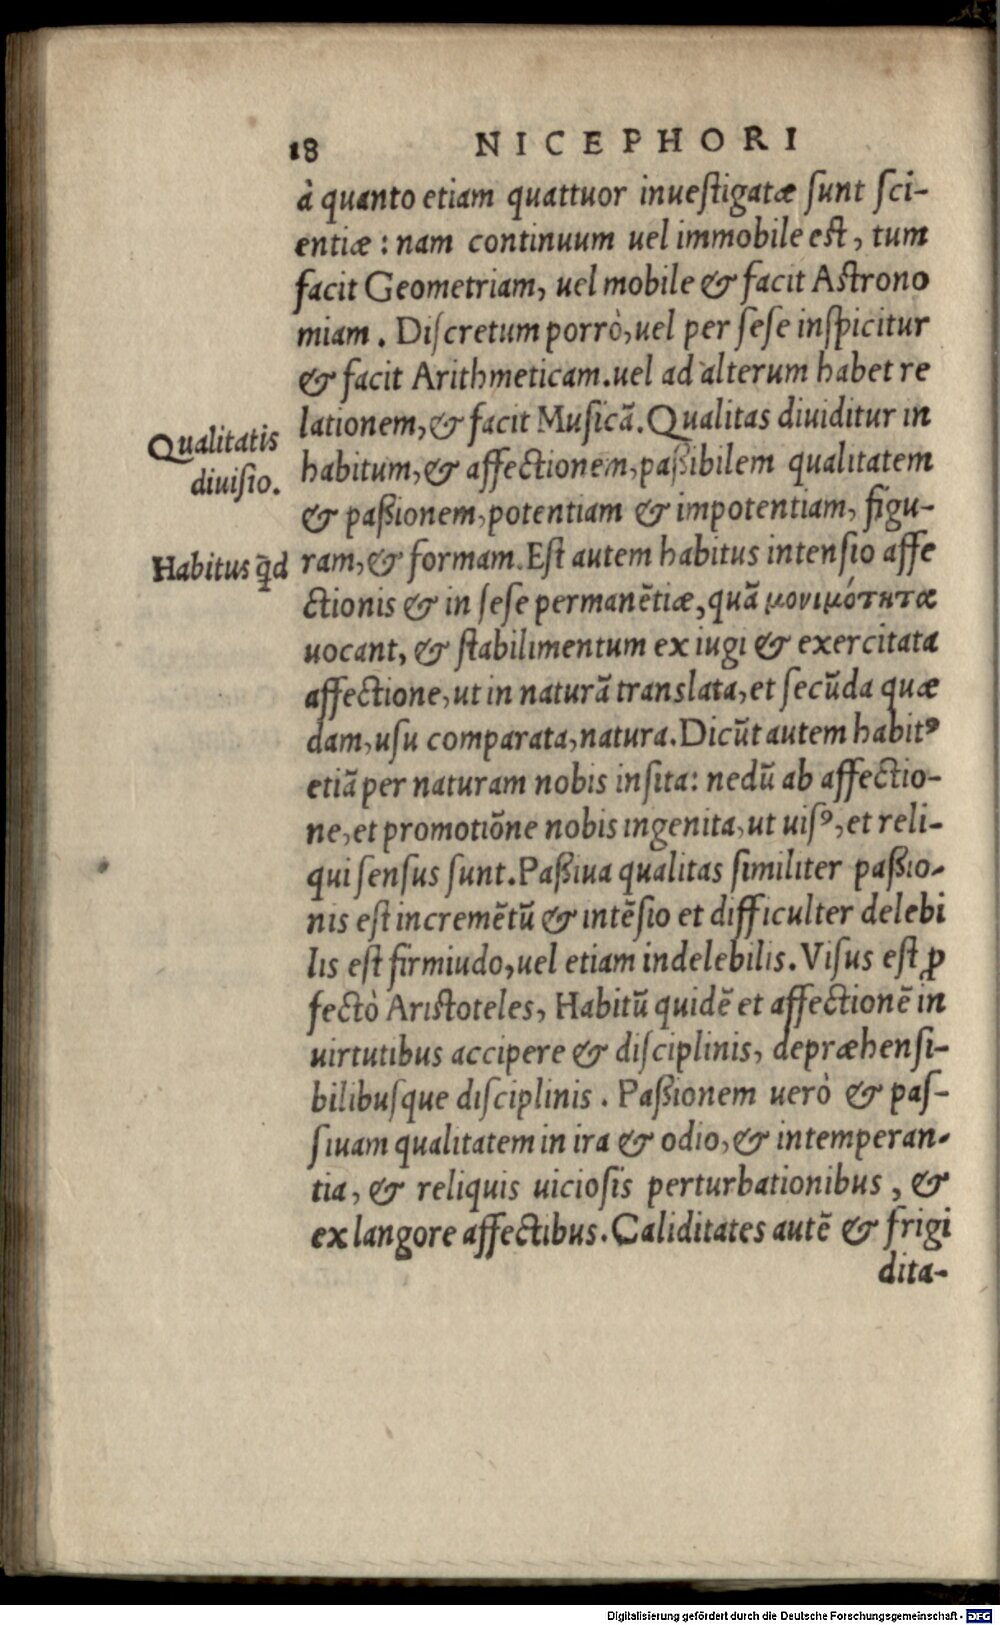 18 NICEPHORI
à quanto etiam quattuor inuestigatæ sunt sci-
entiæ: nam continuum uel immobile est, tum
facit Geometriam, uel mobile & facit Astrono
miam. Discretum porrò, uel per sese inspicitur
& facit Arithmeticam. uel ad alterum habet re
lationem, & facit Musicā. Qualitas diuiditur in
Qualitatis
diuisio.
habitum, & affectionem, paßibilem qualitatem
& paßionem, potentiam & impotentiam, figu-
Habitus q̄d
ram, & formam. Est autem habitus intensio affe
ctionis & in sese permanētiæ, quā μονιμότητα
uocant, & stabilimentum ex iugi & exercitata
affectione, ut in naturā translata, et secūda quæ
dam, usu comparata, natura. Dicūt autem habitꝰ
etiā per naturam nobis insita: nedū ab affectio-
ne, et promotiōne nobis ingenita, ut uisꝰ, et reli-
qui sensus sunt. Paßiua qualitas similiter paßio-
nis est incremētū & intēsio et difficulter delebi
lis est firmiudo, uel etiam indelebilis. Visus est ꝓ
fectò Aristoteles, Habitū quidē et affectionē in
uirtutibus accipere & disciplinis, depræhensi-
bilibusque disciplinis. Paßionem uerò & pas-
siuam qualitatem in ira & odio, & intemperan-
tia, & reliquis uiciosis perturbationibus, &
ex langore affectibus. Caliditates autē & frigi
dita-
Digitalisierung gefördert durch die Deutsche Forschungsgemeinschaft - DFG